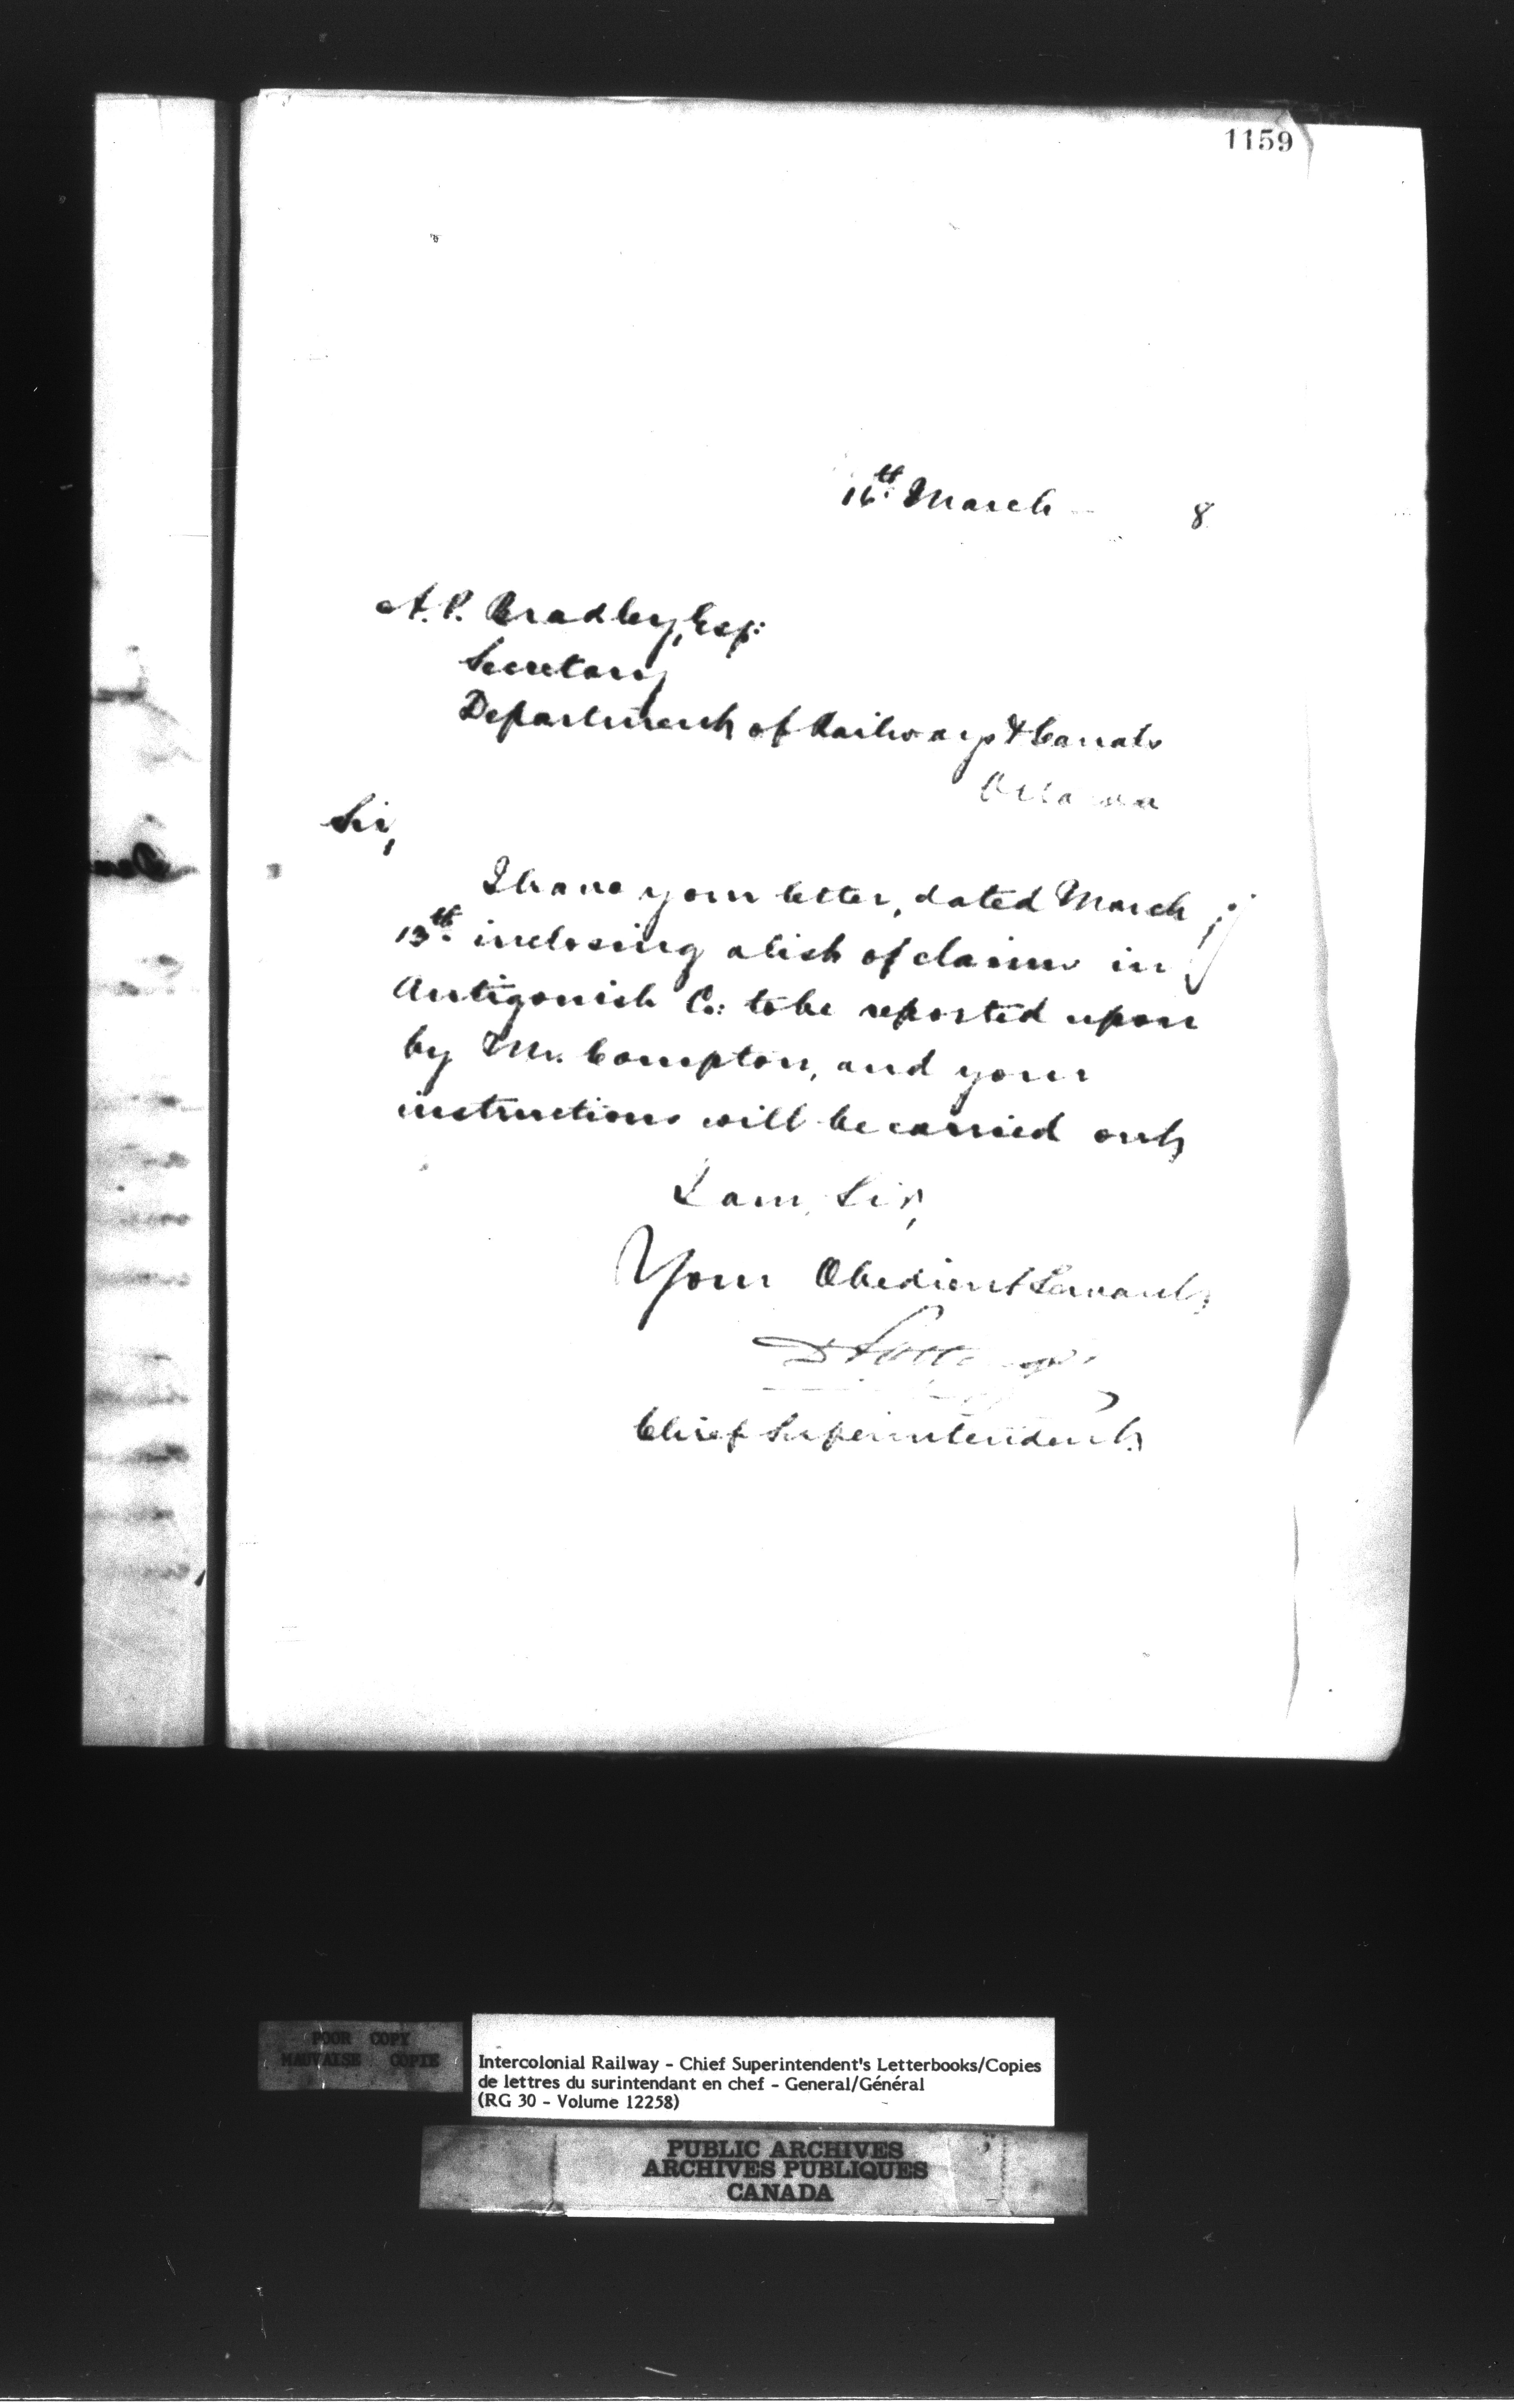 1159
16th March 8
A. P. Bradley, Esq:
Secretary
Department of Railways & Canals
Ottawa
Sir,
I have your letter, dated March
13th. inclosing a list of claims in
Antigonish Co: to be reported upon
by Mr. Compton, and your
instructions will be carried out,
I am, Sir,
Your Obedient Servant,
D Pottinger
Chief Superintendent,
POOR COPY
MAUVAISE COPIE
Intercolonial Railway - Chief Superintendent's Letterbooks/Copies
de lettres du surintendant en chef - General/Général
(RG 30 - Volume 12258)
PUBLIC ARCHIVES
ARCHIVES PUBLIQUES
CANADA